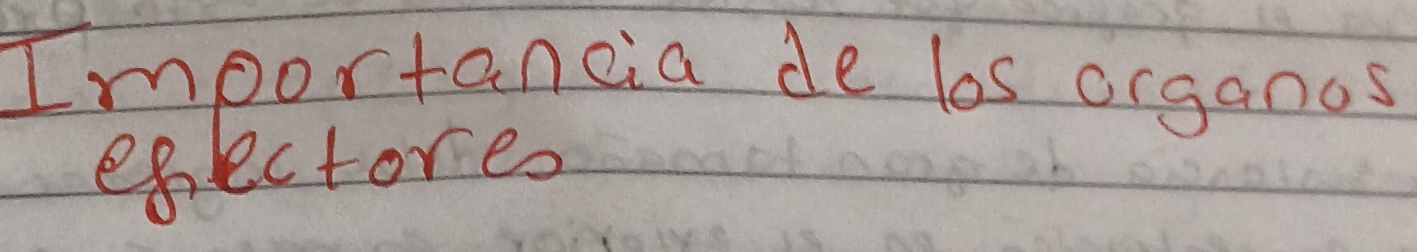 Importancia de los organos
efectores